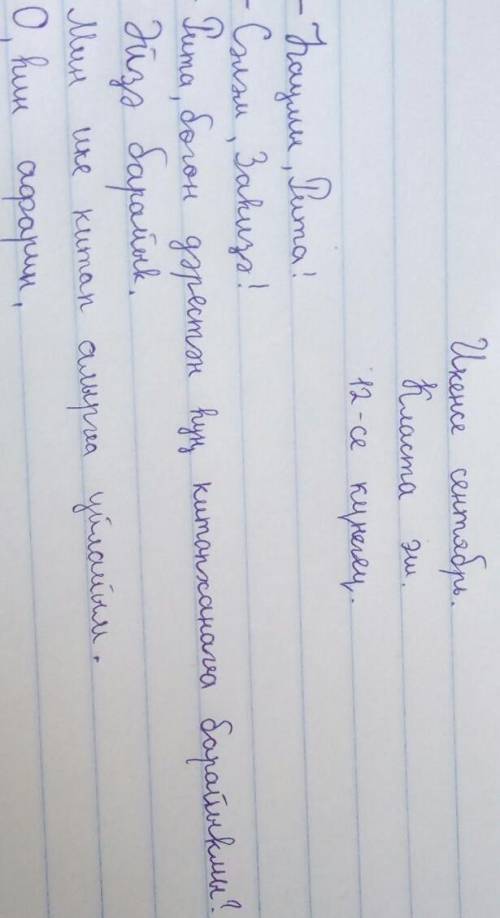 Икенсе сентябрь.
Класта эш.
12-се күнегеү.
- Һаумы, Рита!
- Сәләм, Закизә!
- Рита, бөгөн дәрестән һуң китапханаға барайыҡмы?
Әйҙә барайыҡ.
Мин ике китап алырға уйлайым.
О, һин афарин,